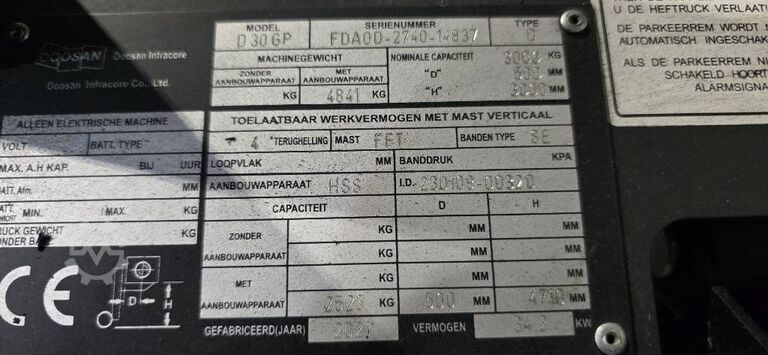 MODEL SERIENUMMER TYPE
D30GP FDA0D-2740-14837 D
DOOSAN Doosan Infracore
Doosan Infracore Co., Ltd.
MACHINEGEWICHT
ZONDER AANBOUWAPPARAAT MET AANBOUWAPPARAAT
KG 4841 KG
NOMINALE CAPACITEIT 3000 KG
"D" 500 MM
"H" 3000 MM
ALLEEN ELEKTRISCHE MACHINE
VOLT BATT. TYPE
MAX. A.H KAP. BIJ UUR
BATT. Afm. MM
MIN. /MAX. KG
GEWICHT KG
TOELAATBAAR WERKVERMOGEN MET MAST VERTICAAL
4 TERUGHELLING MAST FFT BANDEN TYPE SE
LOOPVLAK MM BANDDRUK KPA
AANBOUWAPPARAAT HSS I.D. 230108-00320
CAPACITEIT D H
ZONDER AANBOUWAPPARAAT
KG MM MM
KG MM MM
MET AANBOUWAPPARAAT
KG MM MM
2525 KG 500 MM 4710 MM
GEFABRICEERD(JAAR) 2021 VERMOGEN 34.2 KW
CE
D H
U DE HEFTRUCK VERLAAT
DE PARKEERREM WORDT
AUTOMATISCH INGESCHAK
ALS DE PARKEERREM NI
SCHAKELD HOORT
ALARMSIGNA